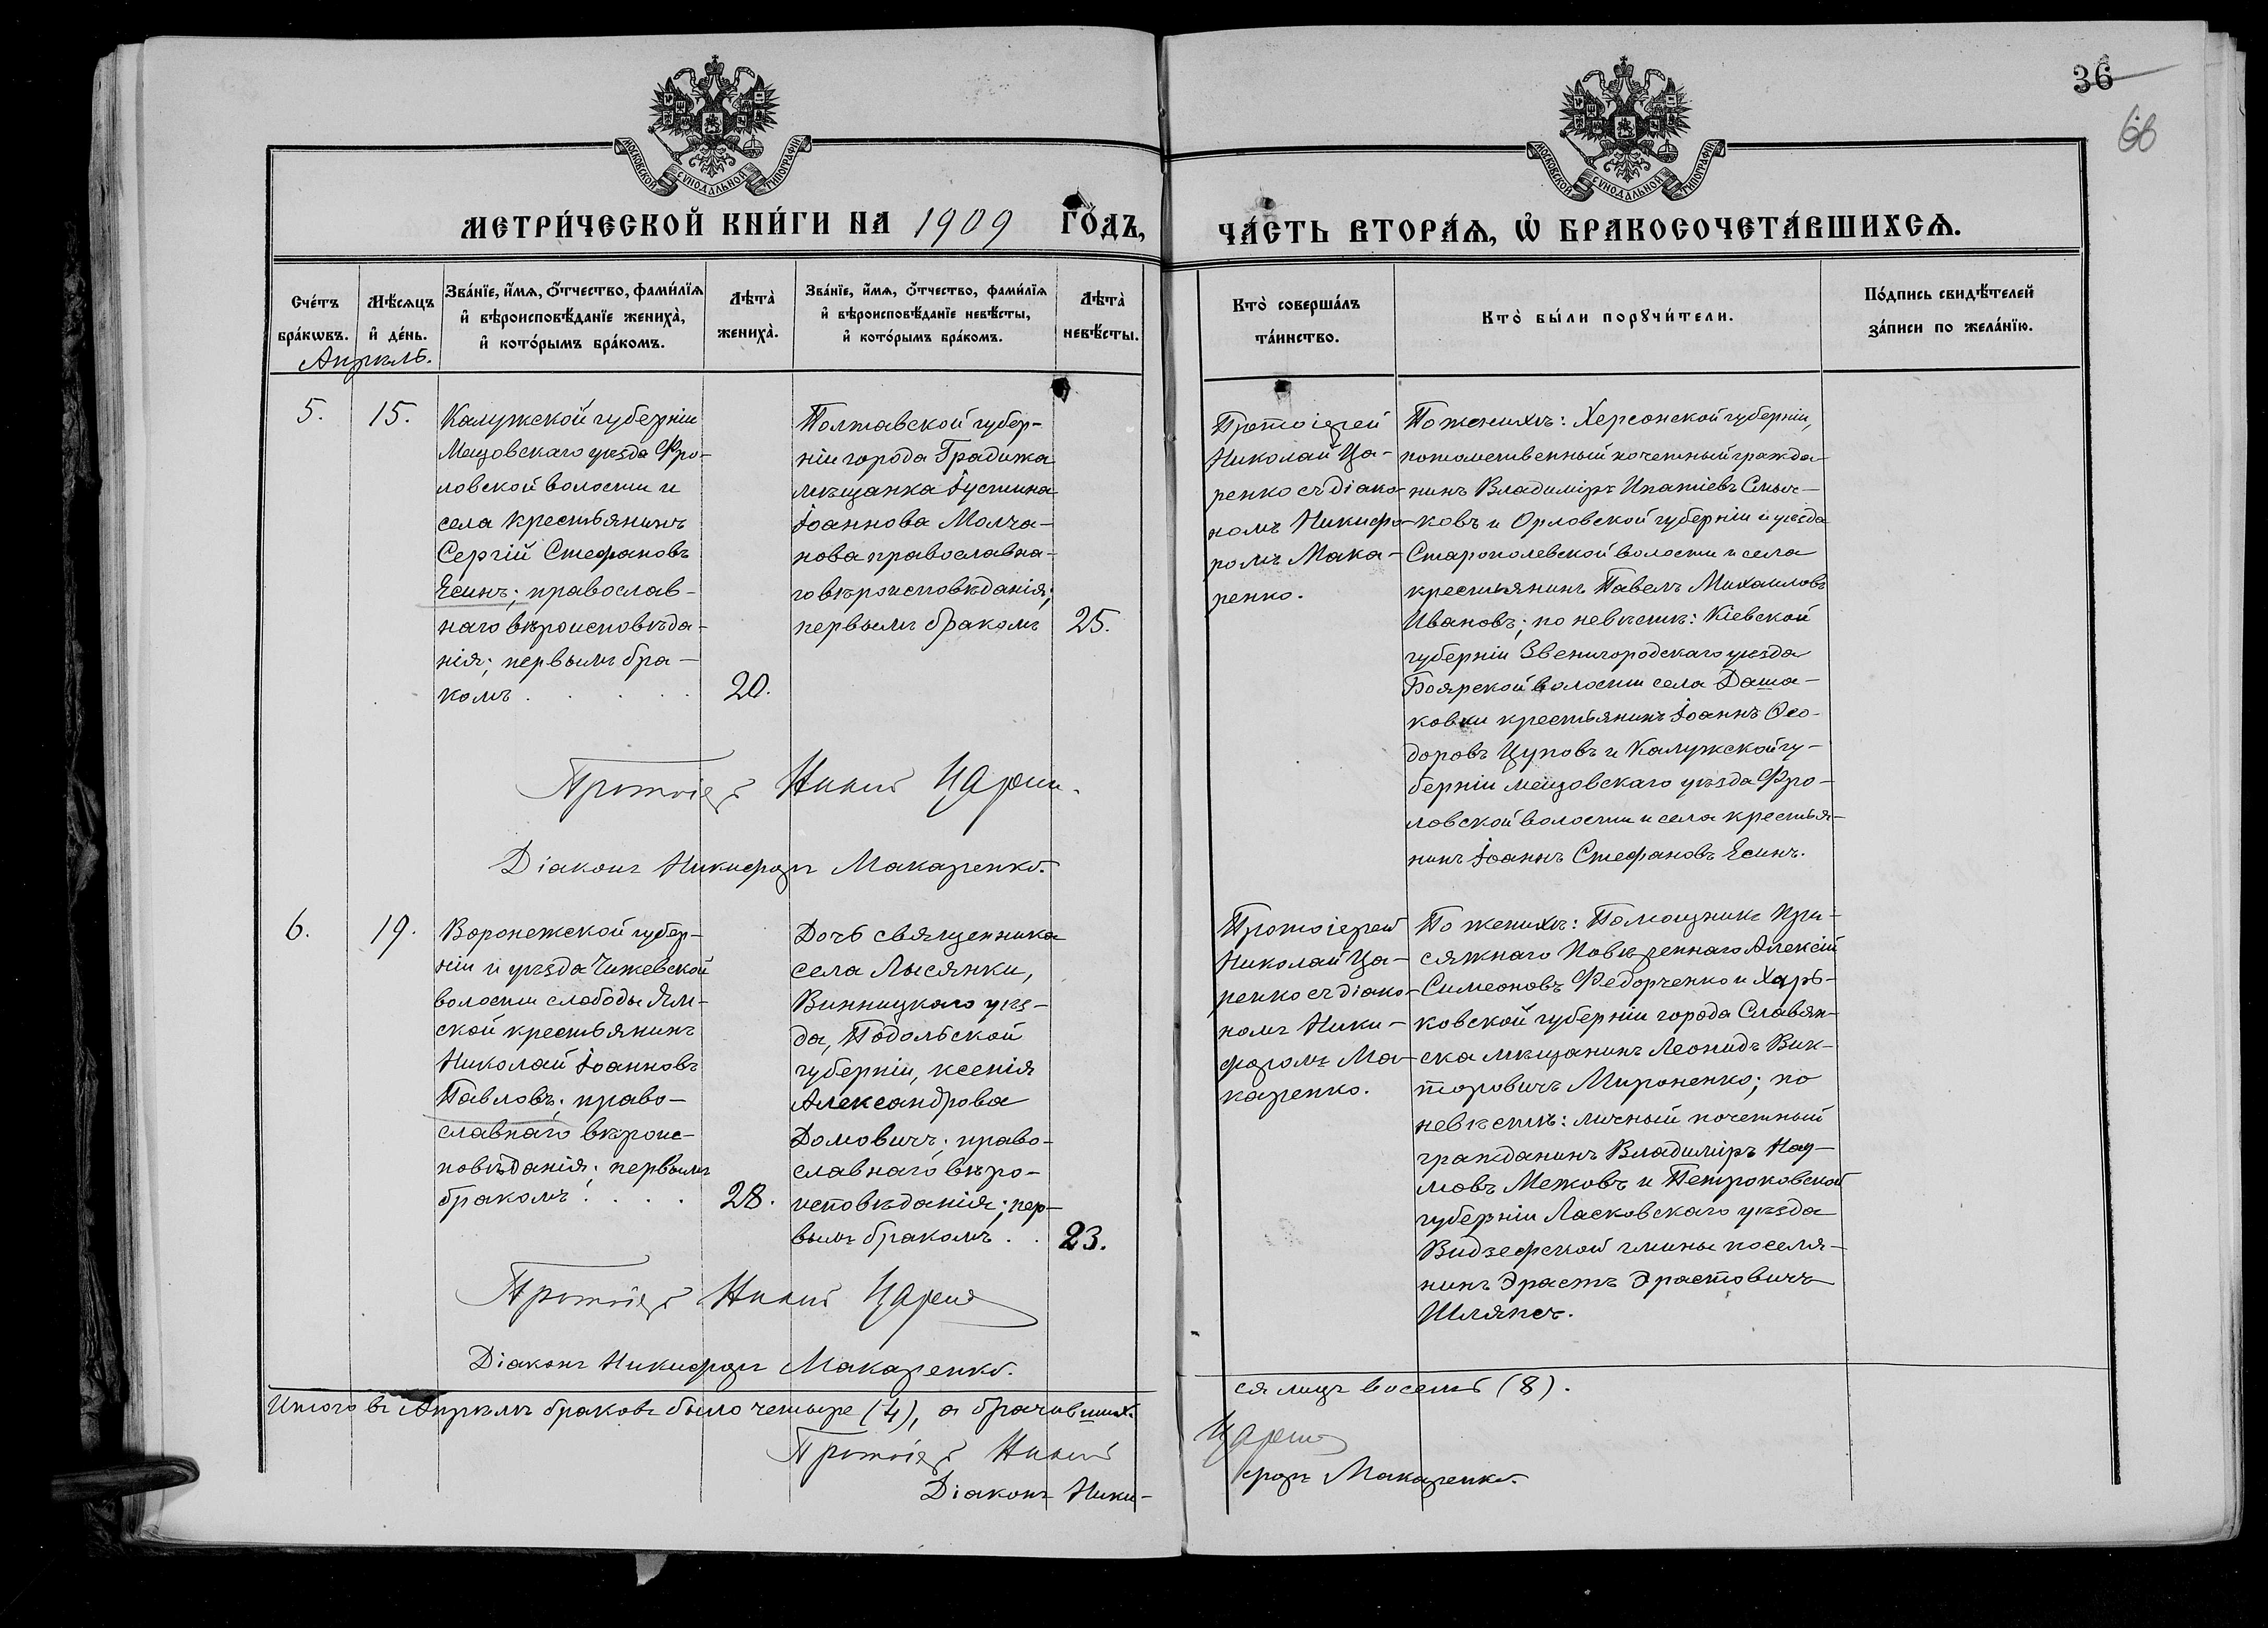 36
68
МОСКОВСКОЙ СУНОДАЛЬНОЙ ТИПОГРАФІИ
МОСКОВСКОЙ СУНОДАЛЬНОЙ ТИПОГРАФІИ
МЕТРИ́ЧЕСКОЙ КНИ́ГИ НА 1909 ГО́ДЪ,
ЧА́СТЬ ВТОРА́Ѧ, Ѡ҆ БРАКОСОЧЕТА́ВШИХСѦ.
Сче́тъ
бра́кѡвъ.
Мѣ́сѧцъ
и҆ де́нь.
Зва́нїе, и҆́мѧ, ѻ҆́тчество, фами́лїѧ
и҆ вѣроисповѣ́данїе жениха̀,
и҆ кото́рымъ бра́комъ.
Лѣта̀
жениха̀.
Зва́нїе, и҆́мѧ, ѻ҆́тчество, фами́лїѧ
и҆ вѣроисповѣ́данїе невѣ́сты,
и҆ кото́рымъ бра́комъ.
Лѣта̀
невѣ́сты.
Кто̀ соверша́лъ
та́инство.
Кто̀ бы́ли порꙋчи́тели.
По́дпись свидѣ́телей
за́писи по жела́нїю.
Апрѣль.
5.
15.
Калужской губерніи
Мещовскаго уѣзда Фро-
ловской волости и
села крестьянинъ
Сергій Стефановъ
Есинъ; православ-
наго вѣроисповѣда-
нія; первымъ бра-
комъ . . . . .
20.
Полтавской губер-
ніи города Градижа
мѣщанка Іустина
Іоаннова Молча-
нова православна-
го вѣроисповѣданія;
первымъ бракомъ
25.
Протоіерей
Николай Ца-
ренко съ діако-
номъ Никифо-
ромъ Мака-
ренко.
По женихѣ: Херсонской губерніи,
потомственный почетный гражда-
нинъ Владиміръ Ипатіевъ Смыч-
ковъ и Орловской губерніи и уѣзда
Старополевской волости и села
крестьянинъ Павелъ Михаиловъ
Ивановъ; по невѣстѣ: Кіевской
губерніи Звенигородскаго уѣзда
Боярской волости села Даша-
ковки крестьянинъ Іоаннъ Ѳео-
доровъ Цуповъ и Калужской гу-
берніи мещовскаго уѣзда Фро-
ловской волости и села крестья-
нинъ Іоаннъ Стефановъ Есинъ.
Протоіер Никол Царен
Діаконъ Никифоръ Макаренко.
6.
19.
Воронежской губер-
ніи и уѣзда Чижевской
волости слободы Ям-
ской крестьянинъ
Николай Іоанновъ
Павловъ; право-
славнаго вѣроис-
повѣданія; первымъ
бракомъ . . . .
28.
Дочь священника
села Лысянки,
Винницкаго уѣз-
да, Подольской
губерніи, Ксенія
Александрова
Домовичъ; право-
славнаго вѣро-
исповѣданія; пер-
вымъ бракомъ . .
23.
Протоіерей
Николай Ца-
ренко съ діако-
номъ Ники-
форомъ Ма-
каренко.
По женихѣ: Помощникъ при-
сяжнаго повѣреннаго Алексій
Симеоновъ Федорченко и Харь-
ковской губерніи города Славян-
ска мѣщанинъ Леонидъ Вик-
торовичъ Мироненко; по
невѣстѣ: личный почетный
гражданинъ Владиміръ Нау-
мовъ Межовъ и Петроковской
губерніи Ласковскаго уѣзда
Видзефской гмины поселя-
нинъ Эрастъ Эрастовичъ
Шляпсъ.
Протоіер Никол Царен
Діаконъ Никифоръ Макаренко.
Итого въ Апрѣлѣ браковъ было четыре (4), а брачивших-
ся лицъ восемь (8).
Протоіер Никол
Царен
Діаконъ Ники-
форъ Макаренко.